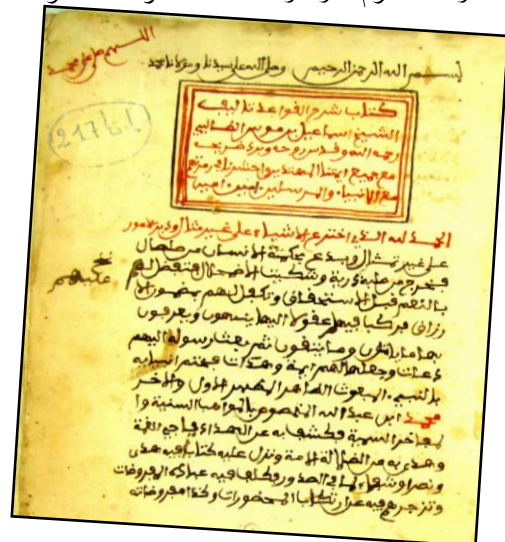 اللهم صل على محمد
بسم الله الرحمن الرحيم وصلى الله على سيدنا ومولانا محمد
كتاب شرح القواعد تاليف
الشيخ اسماعيل بن موسى الجيطالي
رحمه الله وقدس روحه وبرد ضريحه
مع جميع ايمتنا المهتدين واحشرنا في زمرتهم
مع الانبياء والمرسلين امين امين
217
الحمد لله الذي اخترع الاشياء على غير مثال ودبر الامور
على غير تمثال وبدع بحكمته الانسان من صلصال
فيخرج من صلبه ذرية
عليهم
بالنعم قبل الاستحقاق وتكفل لهم بضمون الا
رزاق فركب فيهم عقولا اليها ينتهون ويعرفون
بها ما ياتون وما يتقون ثم بعث رسوله اليهم
وجعلها لهم فختم انبيايه
بالنبي المبعوث الطاهر المطهر الاول والاخر
محمد ابن عبد الله المخصوص بالمواهب السنية وا
لمفاخر السمية فكشف به عن الهداة
وهدى به من الضلالة الامة ونزل عليه كتابا فيه هدى
ونصرا وشفاء لما في الصدور وكلف فيه عباده المفروضات
وزجرهم فيه عن ارتكاب المحضورات